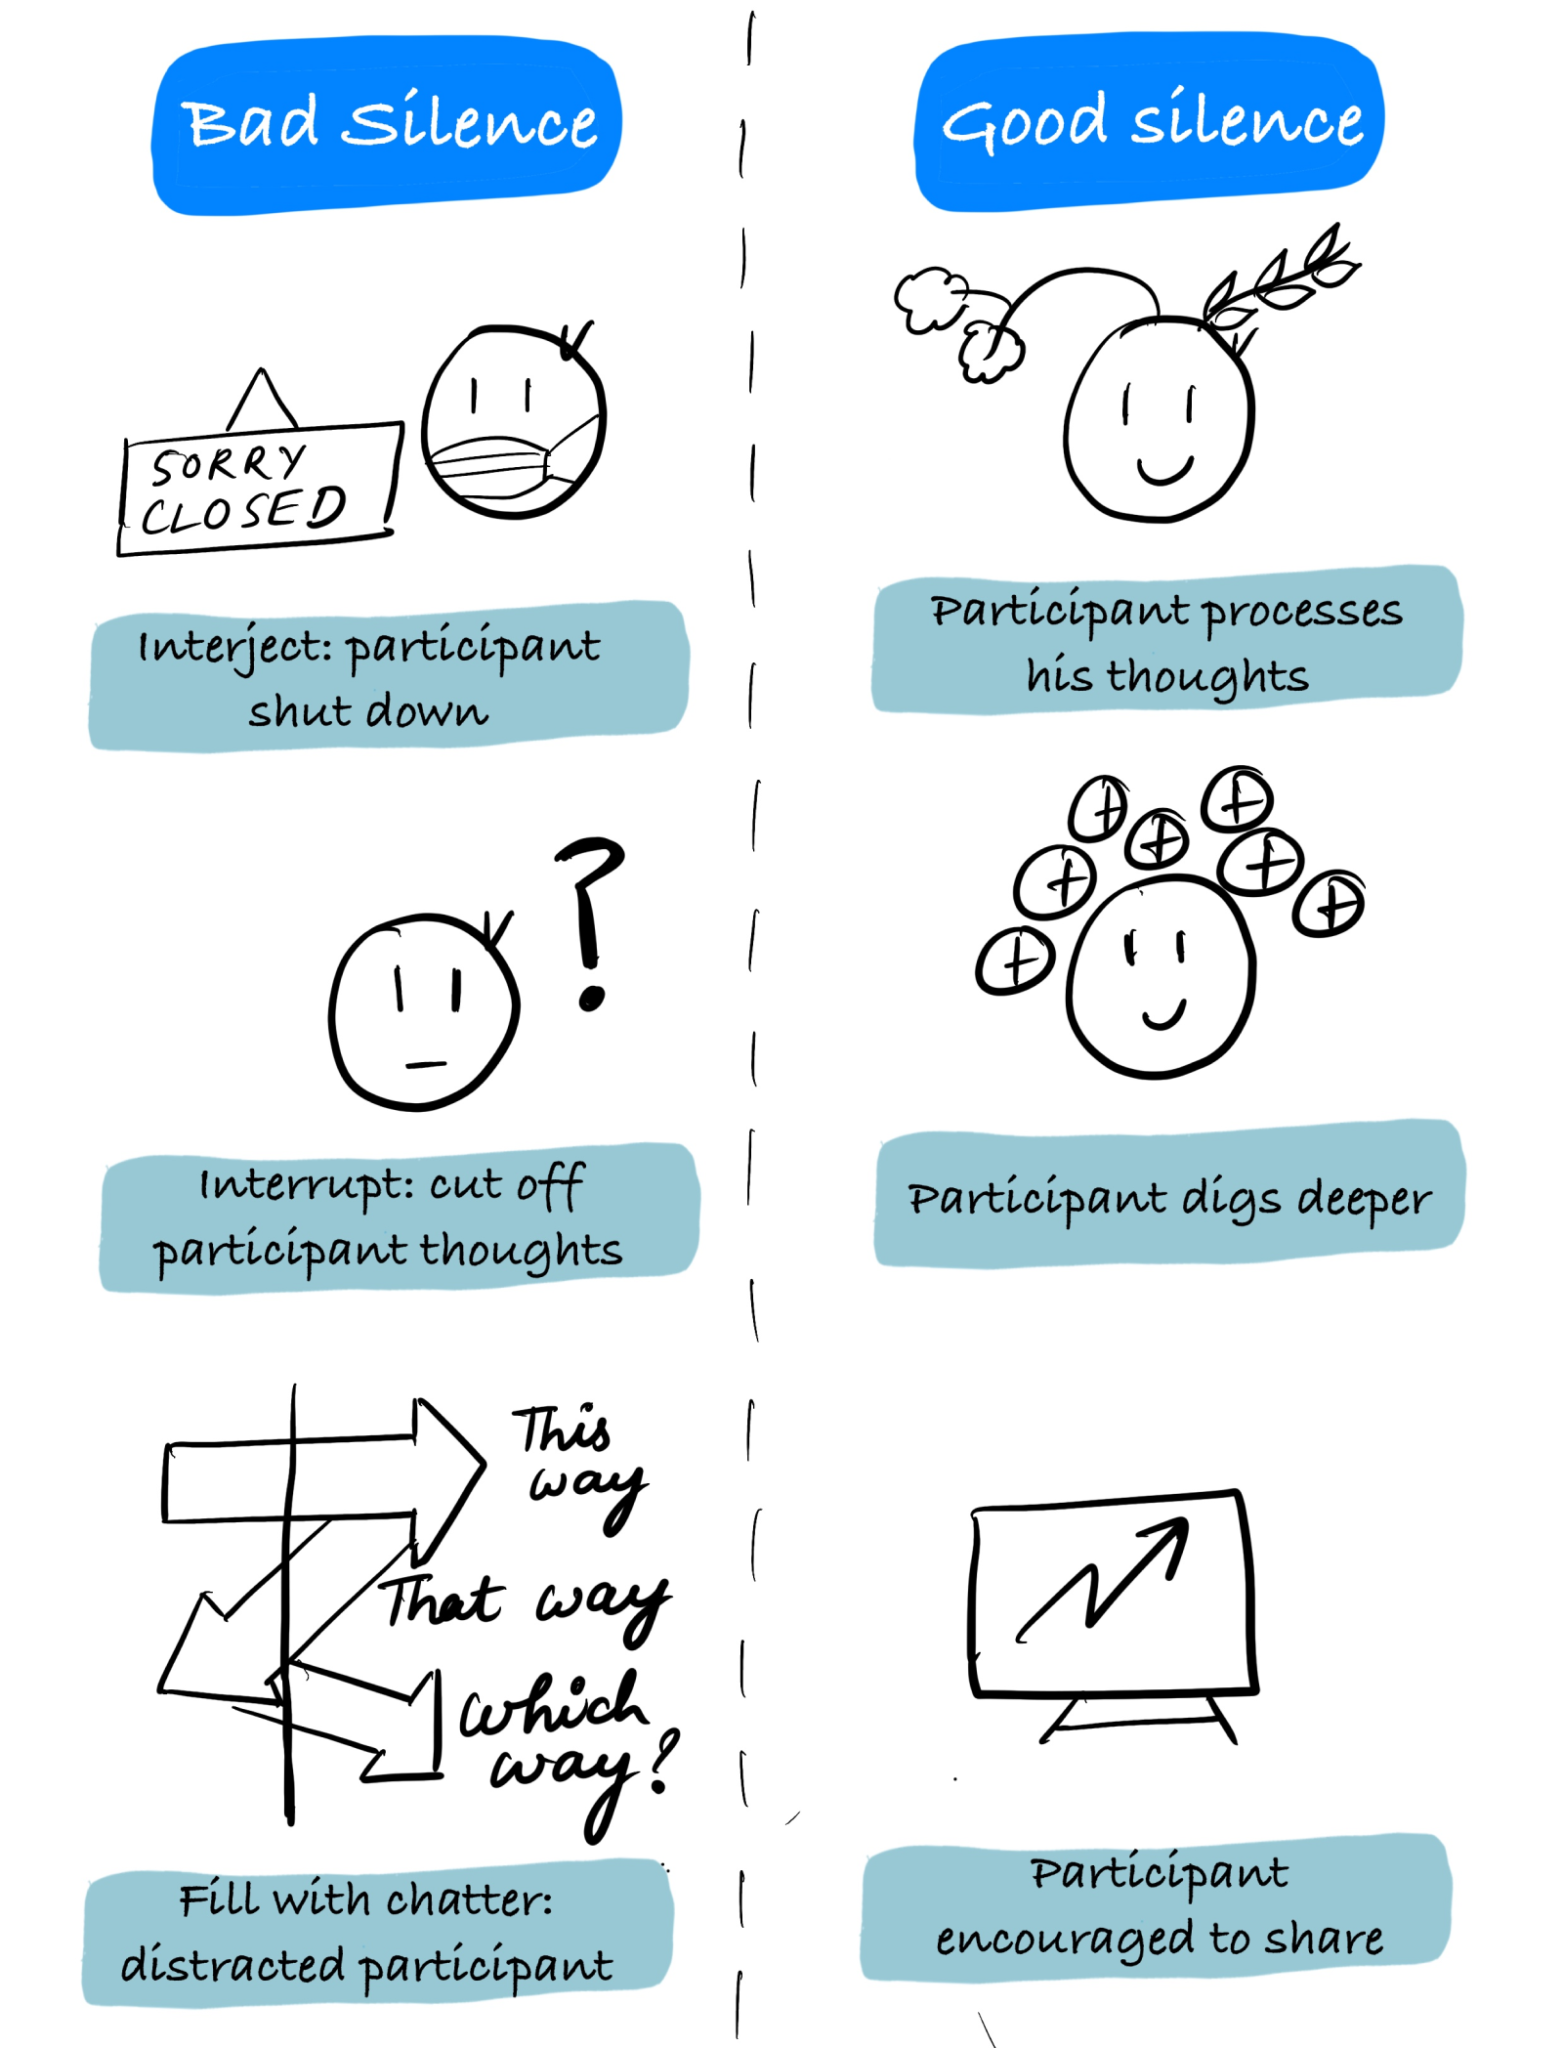 Bad Silence
SORRY
CLOSED
Interject: participant
shut down
?
Interrupt: cut off
participant thoughts
This
way
That way
which
way?
Fill with chatter:
distracted participant
Good silence
Participant processes
his thoughts
Participant digs deeper
Participant
encouraged to share